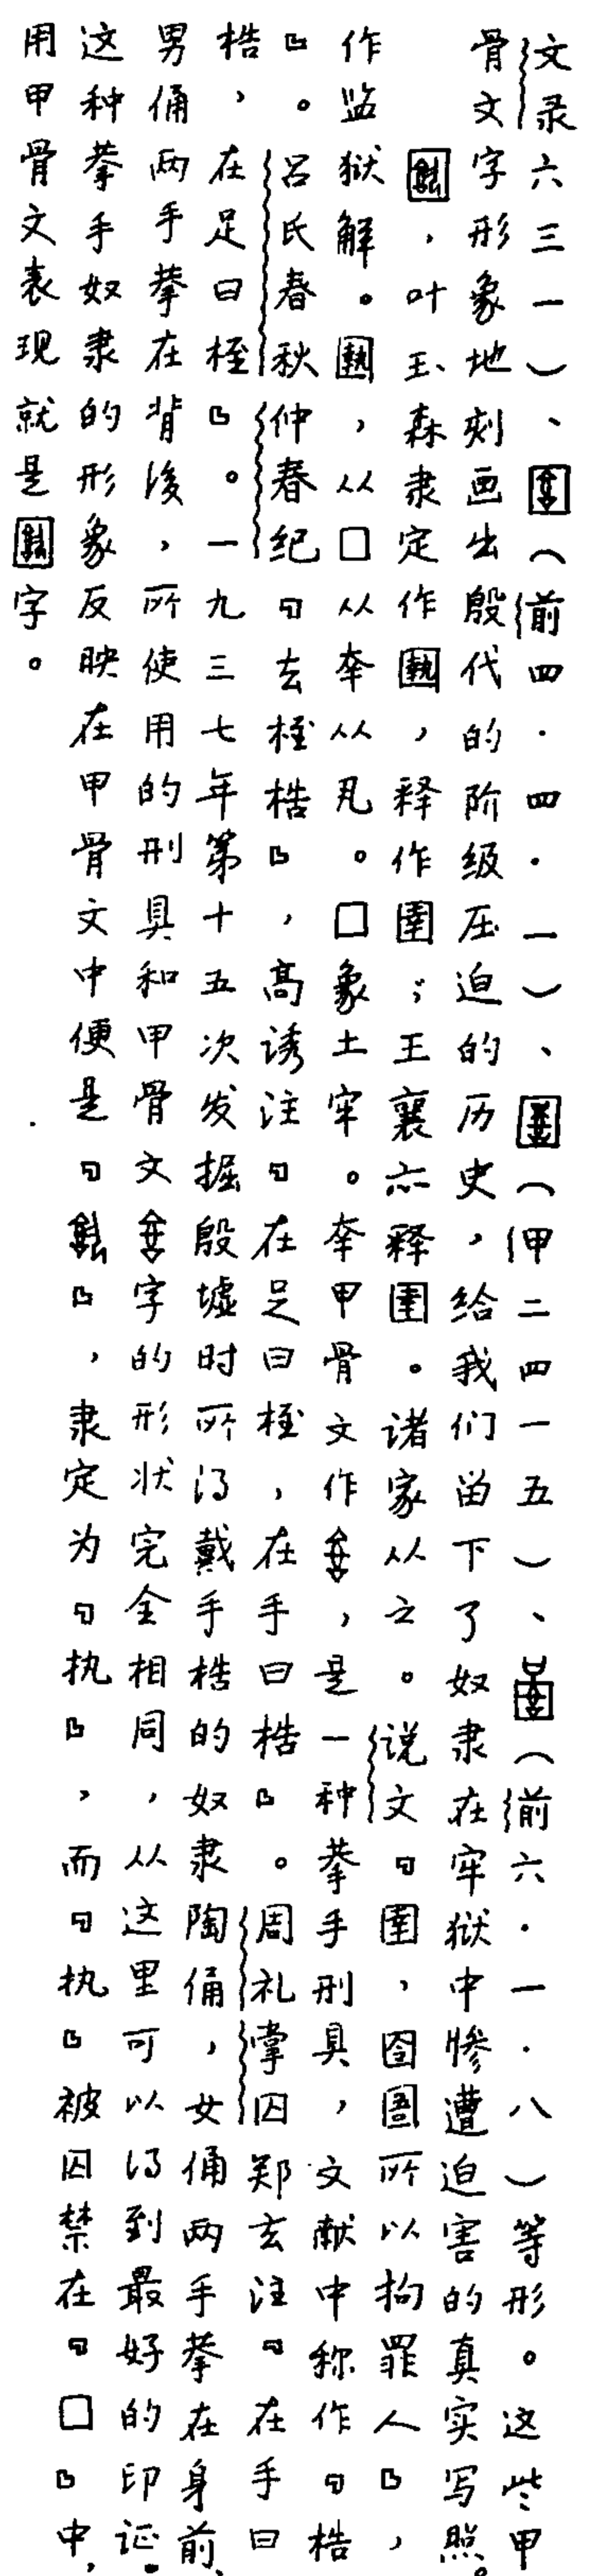 文录六三一)、(前四·四·一)、(甲二四一五)、(前六·一·八)等形。这些甲
骨文字形象地刻画出殷代的阶级压迫的历史,给我们留下了奴隶在牢狱中惨遭迫害的真实写照。
,叶玉森隶定作,释作圉;王襄亦释圉。诸家从之。说文『圉,囹圄所以拘罪人』,
作监狱解。,从囗从㚔从丮。囗象土牢。㚔甲骨文作,是一种拲手刑具,文献中称作『梏
』。吕氏春秋仲春纪『去桎梏』,高诱注『在足曰桎,在手曰梏』。周礼掌囚郑玄注『在手曰
梏,在足曰桎』。一九三七年第十五次发掘殷墟时所得戴手梏的奴隶陶俑,女俑两手拲在身前,
男俑两手拲在背后,所使用的刑具和甲骨文字的形状完全相同,从这里可以得到最好的印证。
这种拲手奴隶的形象反映在甲骨文中便是『』,隶定为『执』,而『执』被囚禁在『囗』中,
用甲骨文表现就是字。